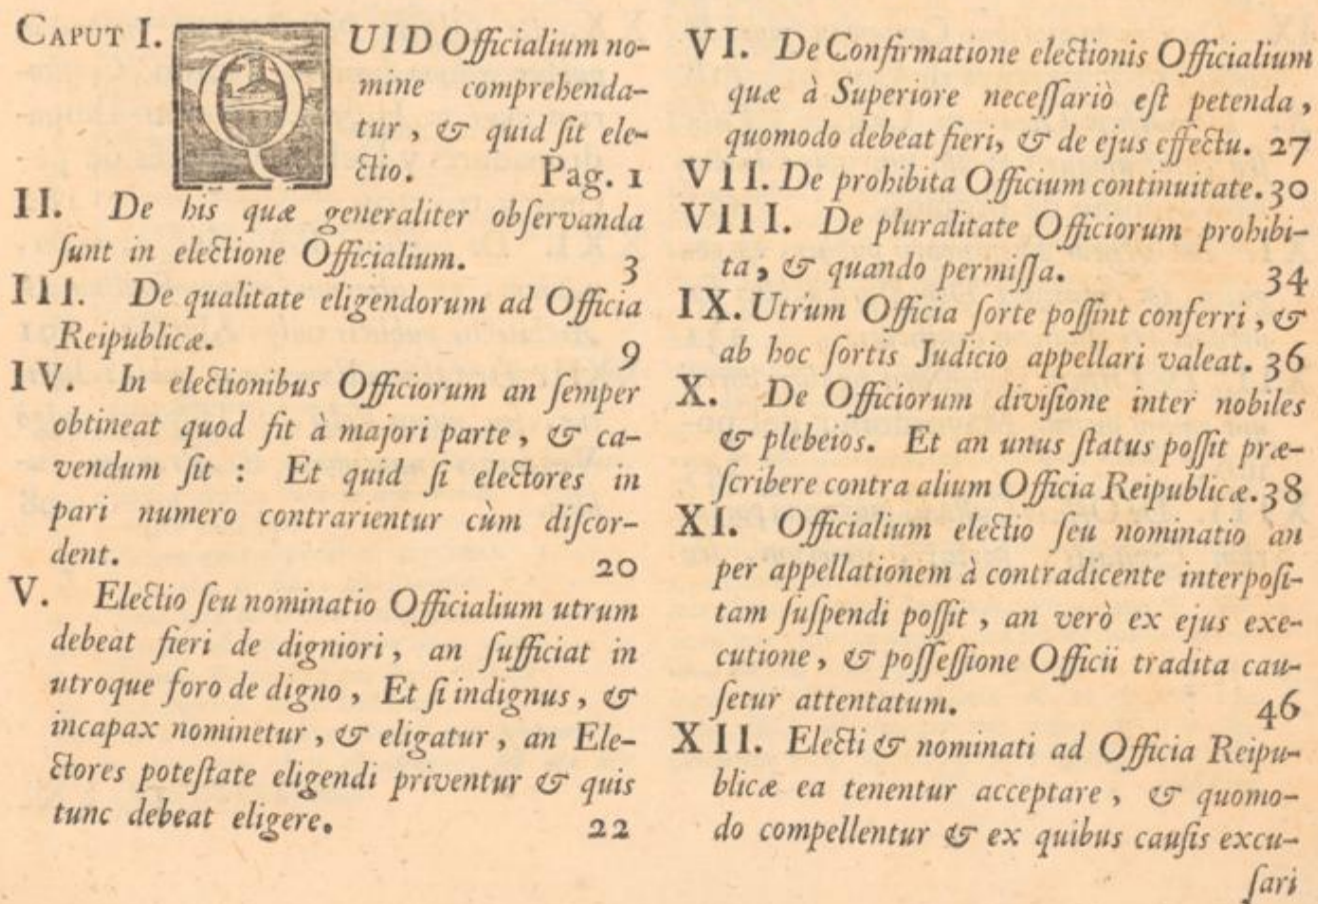 CAPUT I. QUID Officialium no-
mine comprehenda-
tur, & quid ſit ele-
ctio. Pag. 1
II. De his quæ generaliter obſervanda
ſunt in electione Officialium. 3
III. De qualitate eligendorum ad Officia
Reipublicæ. 9
IV. In electionibus Officiorum an ſemper
obtineat quod fit à majori parte, & ca-
vendum ſit : Et quid ſi electores in
pari numero contrarientur cùm diſcor-
dent. 20
V. Electio ſeu nominatio Officialium utrum
debeat fieri de digniori, an ſufficiat in
utroque foro de digno, Et ſi indignus, &
incapax nominetur, & eligatur, an Ele-
ctores poteſtate eligendi priventur & quis
tunc debeat eligere. 22
VI. De Confirmatione electionis Officialium
quæ à Superiore neceſſariò eſt petenda,
quomodo debeat fieri, & de ejus effectu. 27
VII. De prohibita Officium continuitate. 30
VIII. De pluralitate Officiorum prohibi-
ta, & quando permiſſa. 34
IX. Utrum Officia ſorte poſſint conferri, &
ab hoc ſortis Judicio appellari valeat. 36
X. De Officiorum diviſione inter nobiles
& plebeios. Et an unus ſtatus poſſit præ-
ſcribere contra alium Officia Reipublicæ. 38
XI. Officialium electio ſeu nominatio an
per appellationem à contradicente interpoſi-
tam ſuſpendi poſſit, an verò ex ejus exe-
cutione, & poſſeſſione Officii tradita cau-
ſetur attentatum. 46
XII. Electi & nominati ad Officia Reipu-
blicæ ea tenentur acceptare, & quomo-
do compellentur & ex quibus cauſis excu-
ſari